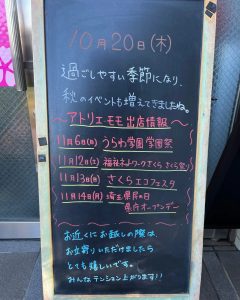 10月20日(木)
過ごしやすい季節になり、
秋のイベントも増えてきましたね。
~アトリエ・モモ 出店情報~
11月6日(日) うらわ学園 学園祭
11月12日(土) 福祉ネットワークさくら さくら祭り
11月13日(日) さくらエコフェスタ
11月14日(月) 埼玉県民の日
県庁オープンデー
お近くにお越しの際は、
お立寄りいただけましたら
とても嬉しいです。
みんなテンション上がります♪♪